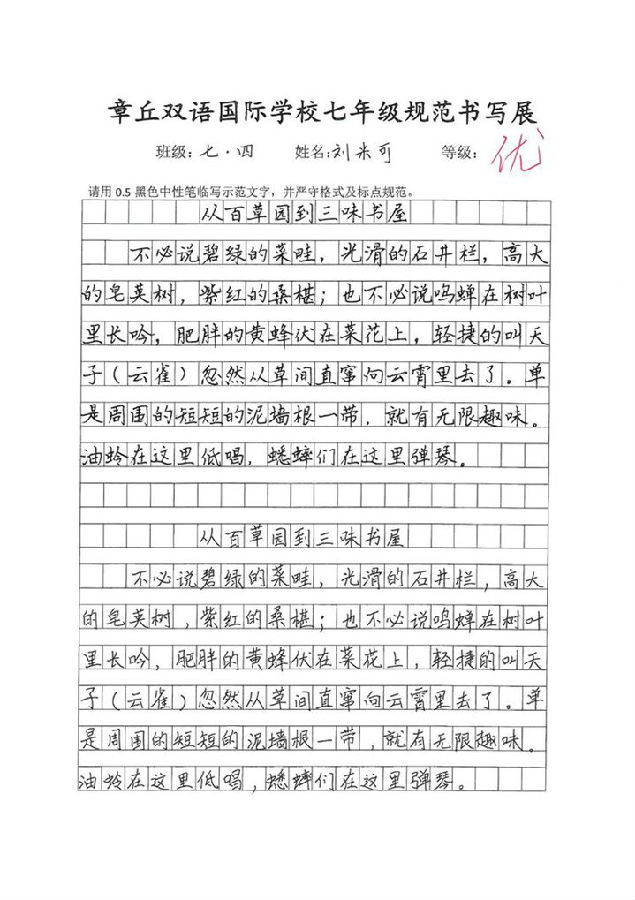 章丘双语国际学校七年级规范书写展
班级：七·四 姓名：刘米可 等级：优
请用 0.5 黑色中性笔临写示范文字，并严守格式及标点规范。
从百草园到三味书屋
不必说碧绿的菜畦，光滑的石井栏，高大
的皂荚树，紫红的桑椹；也不必说鸣蝉在树叶
里长吟，肥胖的黄蜂伏在菜花上，轻捷的叫天
子（云雀）忽然从草间直窜向云霄里去了。单
是周围的短短的泥墙根一带，就有无限趣味。
油蛉在这里低唱，蟋蟀们在这里弹琴。
从百草园到三味书屋
不必说碧绿的菜畦，光滑的石井栏，高大
的皂荚树，紫红的桑椹；也不必说鸣蝉在树叶
里长吟，肥胖的黄蜂伏在菜花上，轻捷的叫天
子（云雀）忽然从草间直窜向云霄里去了。单
是周围的短短的泥墙根一带，就有无限趣味。
油蛉在这里低唱，蟋蟀们在这里弹琴。